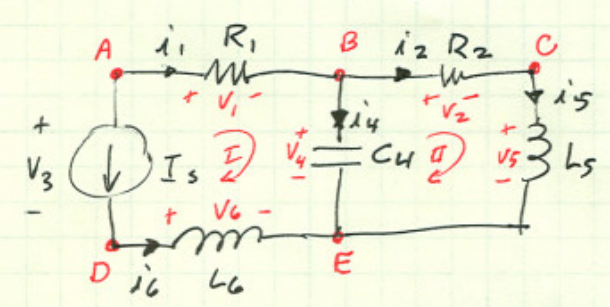 A i₁ R₁ B i₂ R₂ C
+ V₁ - + V₂ - i₅
+ i₄ +
V₃ I_s I V₄ C₄ II V₅ L₅
- + V₆ - - -
D i₆ L₆ E